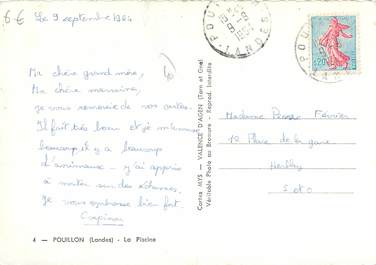 6€
Le 9 septembre 1964
Ma chère grand mère,
Ma chère marraine,
je vous remercie de vos cartes.
Il fait très beau et je m'amuse
beaucoup, il y a beaucoup
d'animaux - y'ai appris
à monter sur des échasses.
Je vous embrasse bien fort.
4 — POUILLON (Landes) - La Piscine
Cartes MYS - VALENCE-D'AGEN (Tarn et Gne)
Véritable Photo au Bromure - Reprod. Interdite
POUILLON
LANDES
0,20
Madame Pierre Février
12 Place de la gare
S et O